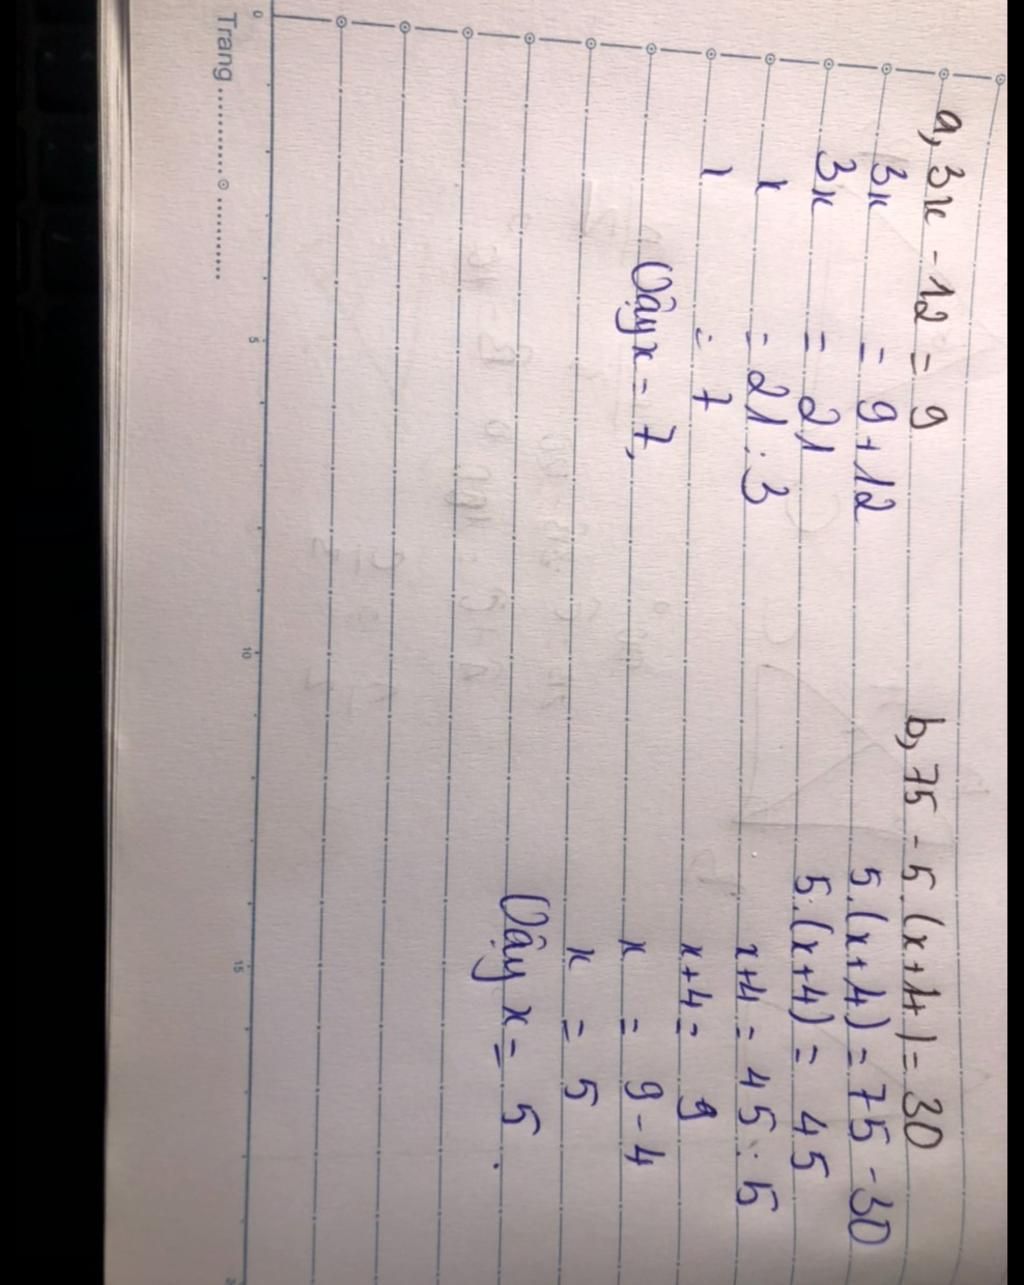 a, 3x - 12 = 9
3x = 9 + 12
3x = 21
x = 21 : 3
x = 7
Vậy x = 7,
b, 75 - 5. (x + 4) = 30
5. (x + 4) = 75 - 30
5. (x + 4) = 45
x + 4 = 45 : 5
x + 4 = 9
x = 9 - 4
x = 5
Vậy x = 5.
0 5 10 15
Trang .......... ..........